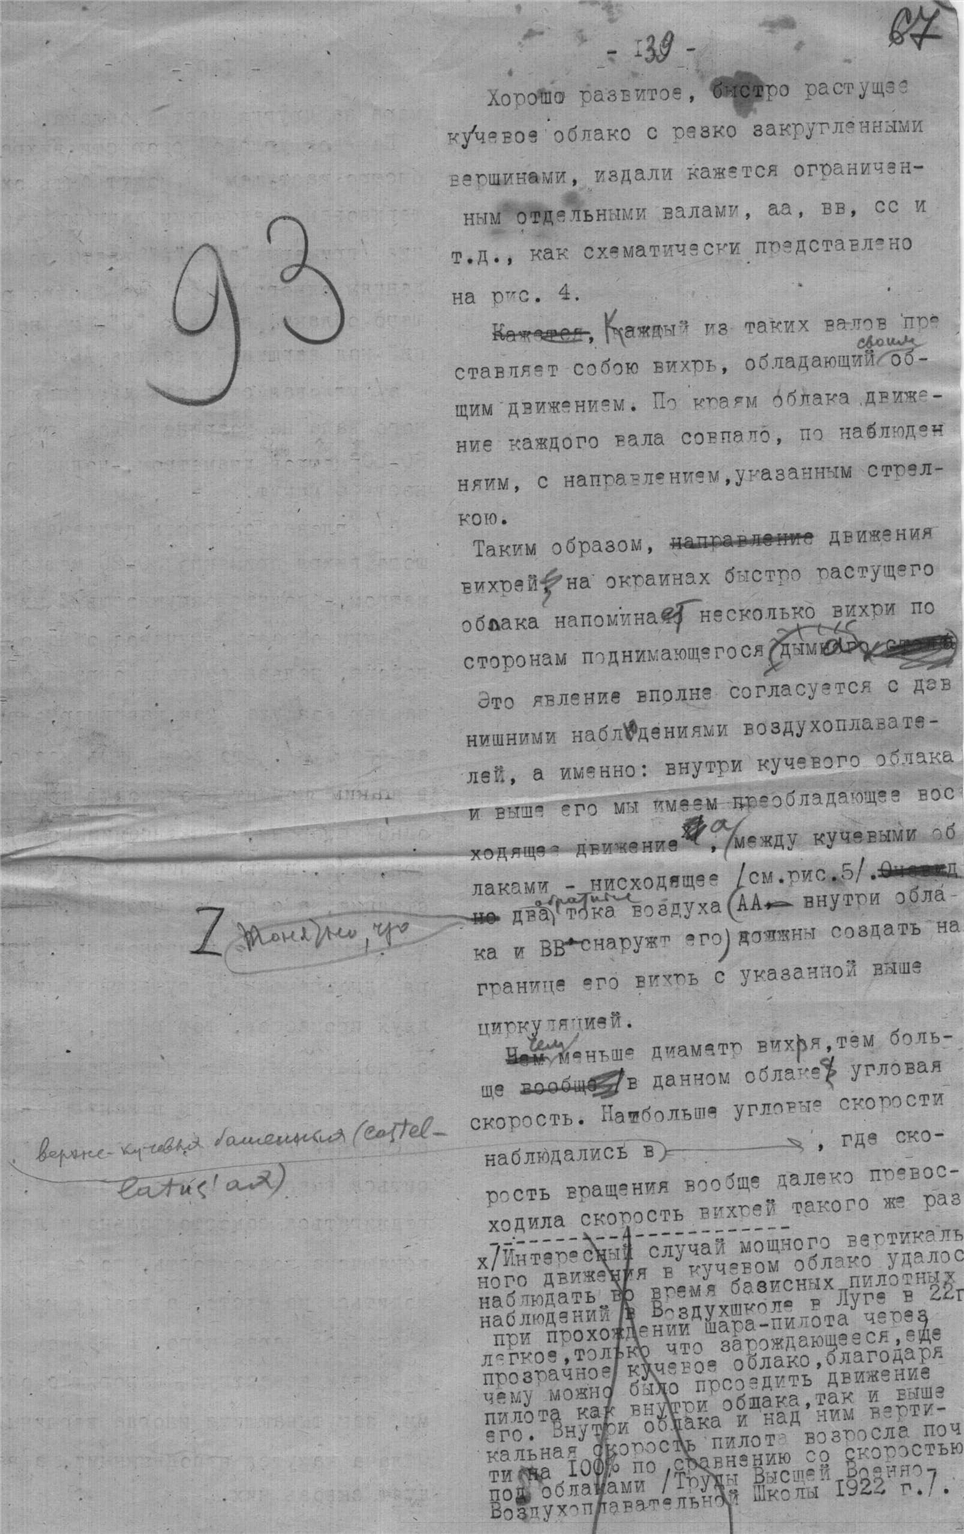 67
- 139 -
Хорошо развитое, быстро растущее
кучевое облако с резко закругленными
вершинами, издали кажется ограничен-
ным отдельными валами, аа, вв, сс и
т.д., как схематически представлено
на рис. 4.
93
Кажется, Каждый из таких валов пре
своим
ставляет собою вихрь, обладающий об-
щим движением. По краям облака движе-
ние каждого вала совпало, по наблюден
няим, с направлением,указанным стрел-
кою.
Таким образом, направление движения
вихрей, на окраинах быстро растущего
облака напоминает несколько вихри по
сторонам поднимающегося
Это явление вполне согласуется с дав
нишними наблюдениями воздухоплавате-
лей, а именно: внутри кучевого облака
и выше его мы имеем преобладающее вос
ходящее движение, а между кучевыми об
лаками - нисходящее /см.рис.5/. Очевид
обратные
но два тока воздуха (АА - внутри обла-
Z Понятно, что
ка и ВВ снаружт его) должны создать на
границе его вихрь с указанной выше
циркуляцией.
Чем
Чем меньше диаметр вихря,тем боль-
ще вообще в данном облаке угловая
скорость. Наибольше угловые скорости
верхне-кучевыя башенныя (castel-
latus'ах)
наблюдались в , где ско-
рость вращения вообще далеко превос-
ходила скорость вихрей такого же раз
х/Интересный случай мощного вертикаль
ного движения в кучевом облако удалос
наблюдать во время базисных пилотных
наблюдений в Воздухшколе в Луге в 22г
при прохождении шара-пилота через
легкое,только что зарождающееся,еще
прозрачное кучевое облако,благодаря
чему можно было прсоедить движение
пилота как внутри облака,так и выше
его. Внутри облака и над ним верти-
кальная скорость пилота возросла поч
ти на 100% по сравнению со скоростью
под облаками /Труды Высшей Военно
Воздухоплавательной Школы 1922 г./.